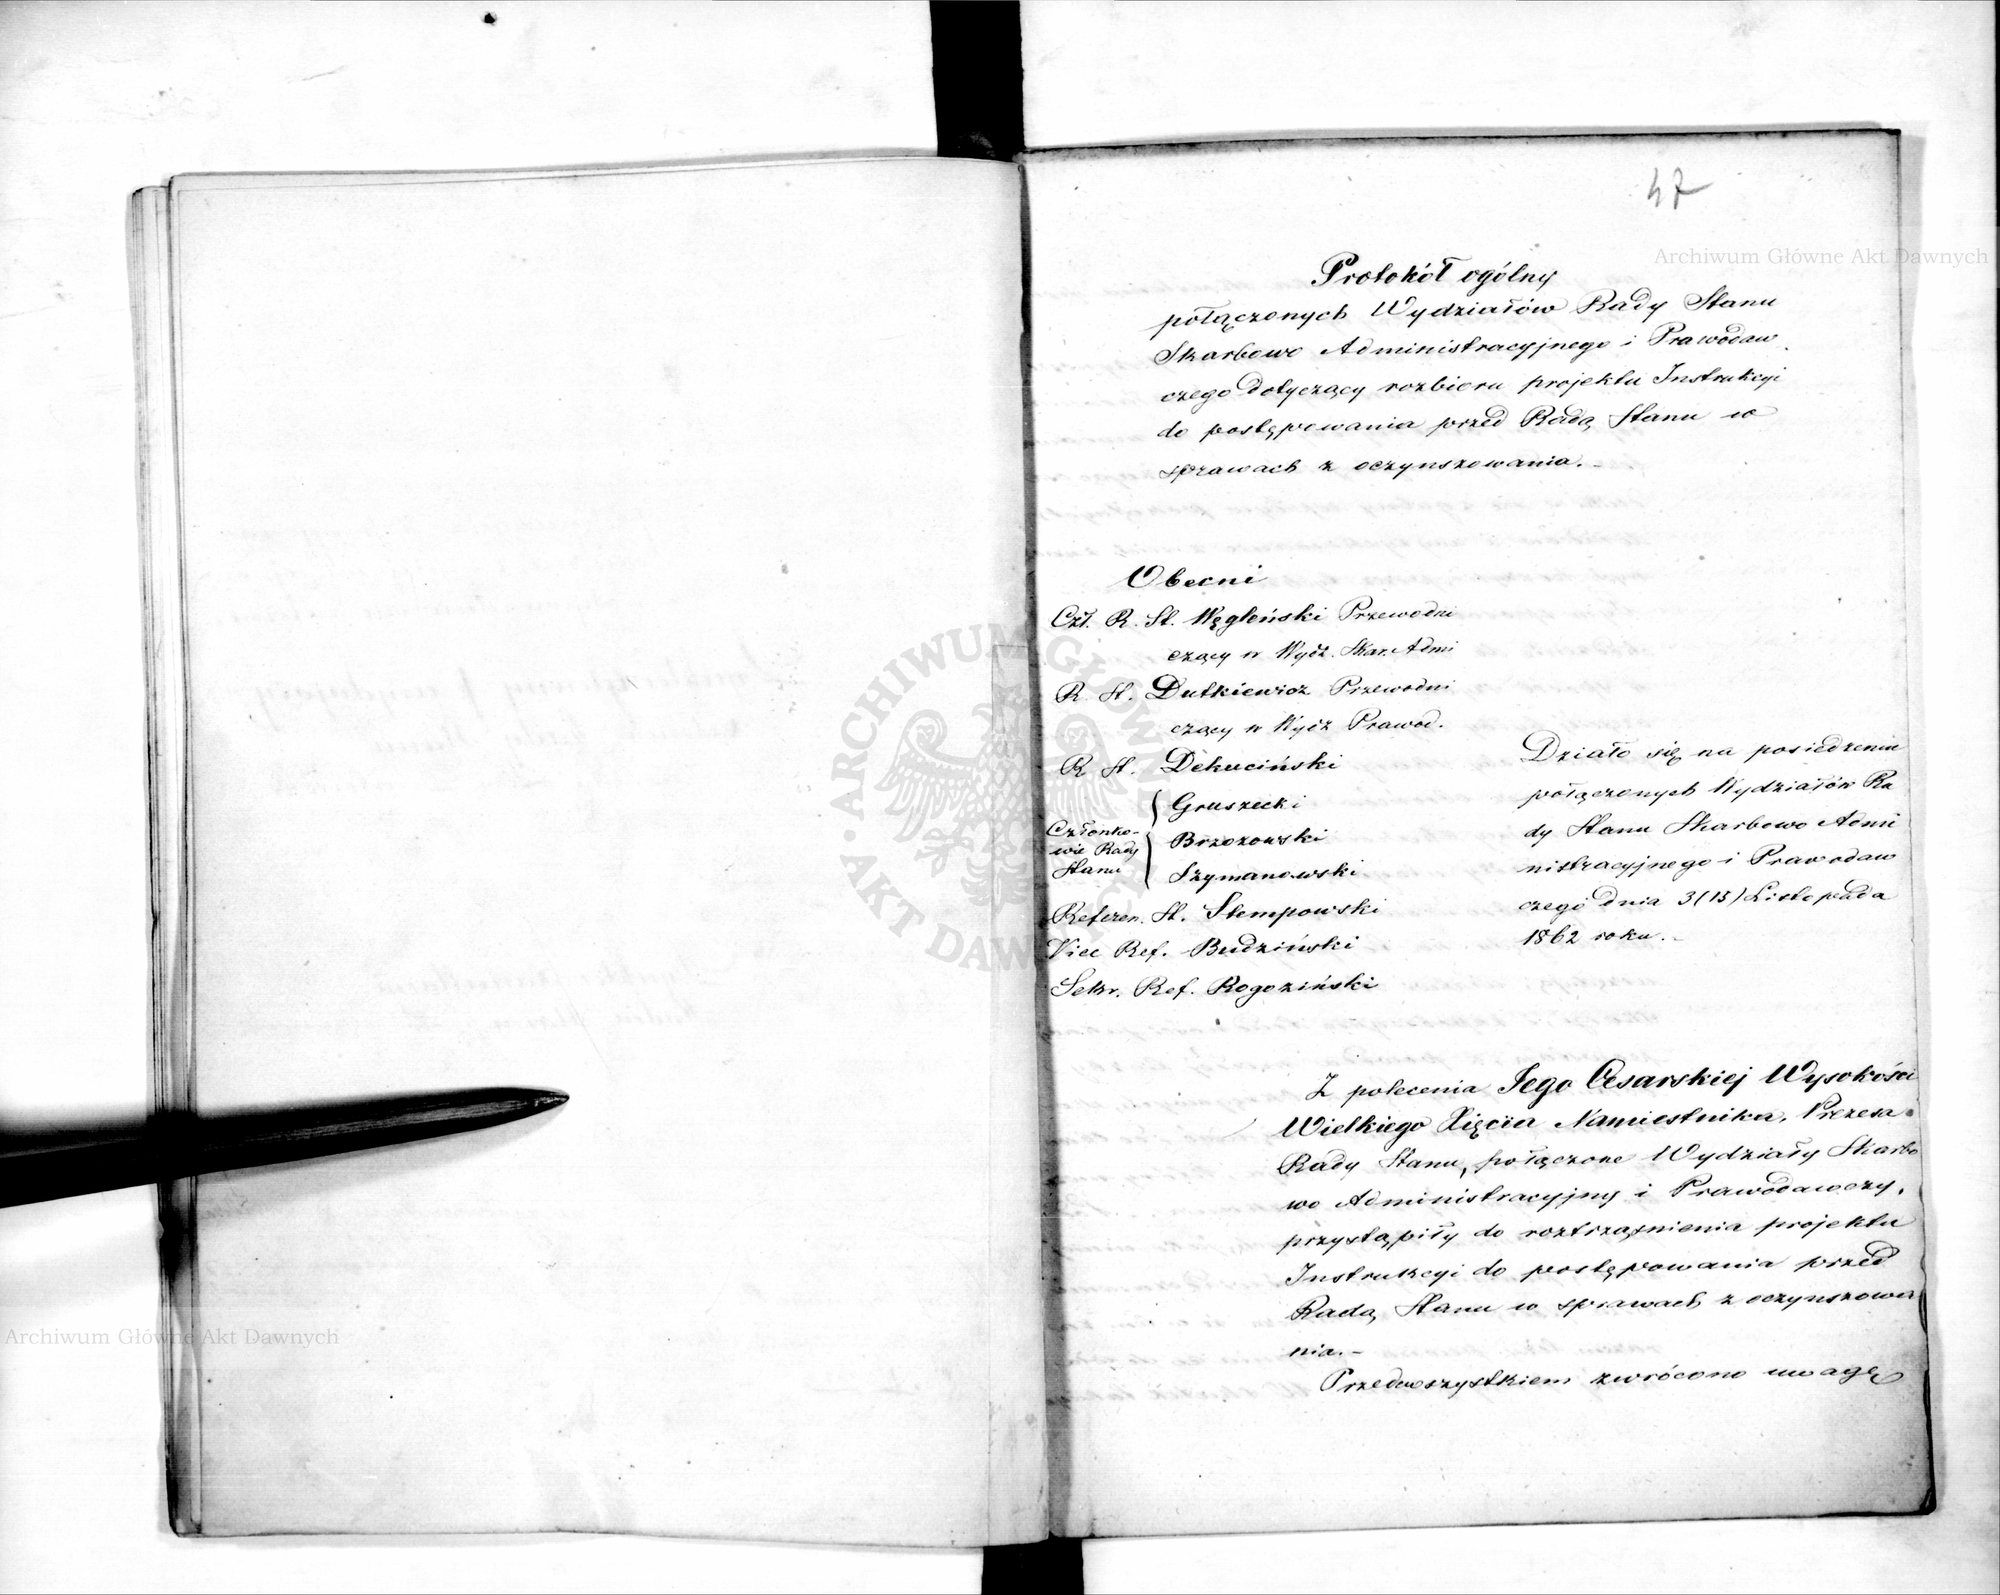 47
Protokół ogólny
połączonych Wydziałów Rady Stanu
Skarbowo Administracyjnego i Prawodaw
czego dotyczący rozbioru projektu Instrukcyi
do postępowania przed Radą Stanu w
sprawach z oczynszowania.-
Obecni
Czł. R. St. Węgleński Przewodni
czący w Wydz. Skar. Admi
R. St. Dutkiewicz Przewodni
czący w Wydz Prawod.
R. St. Dekuciński
Członko-
wie Rady
Stanu
Gruszecki
Brzozowski
Szymanowski
Referen. St. Stempowski
Vice Ref. Budziński
Sekr. Ref. Rogoziński
Działo się na posiedzeniu
połączonych Wydziałów Ra
dy Stanu Skarbowo Admi
nistracyjnego i Prawodaw
czego dnia 3(15) Listopada
1862 roku.-
Z polecenia Jego Cesarskiej Wysokości
Wielkiego Xięcia Namiestnika, Prezesa
Rady Stanu, połączone Wydziały Skarbo
wo Administracyjny i Prawodawczy,
przystąpiły do roztrząśnienia projektu
Instrukcyi do postępowania przed
Radą Stanu w sprawach z oczynszowa
nia.-
Przedewszystkiem zwrócono uwagę
Archiwum Główne Akt Dawnych
Archiwum Główne Akt Dawnych
ARCHIWUM GŁÓWNE AKT DAWNYCH